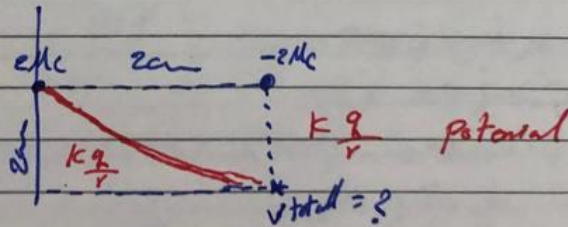 2Mc 2cm -2Mc
2cm K q/r K q/r potenial
Vtotal = ?